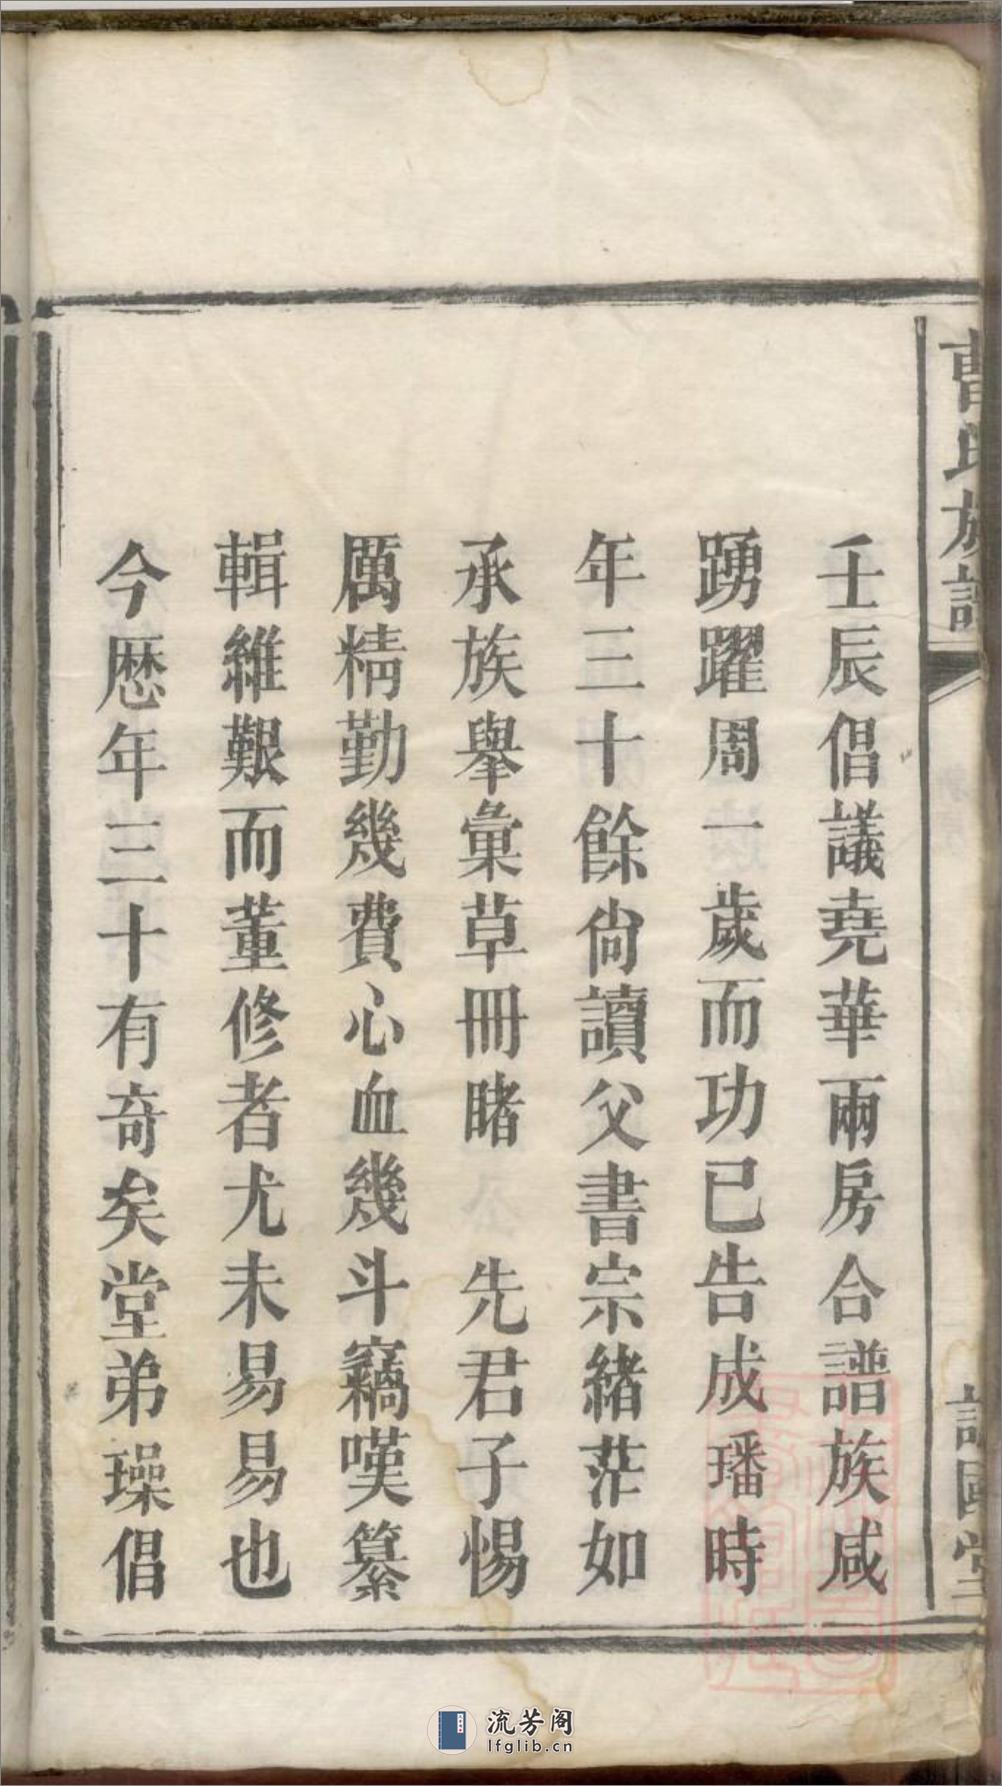 曹氏族譜
壬辰倡議堯華兩房合譜族咸
踴躍周一歲而功已告成璠時
年三十餘尙讀父書宗緒茫如
承族舉彙草冊睹 先君子惕
厲精勤幾費心血幾斗竊嘆纂
輯維艱而董修者尤未易易也
今歷年三十有奇矣堂弟璪倡
流芳阁
lfglib.cn